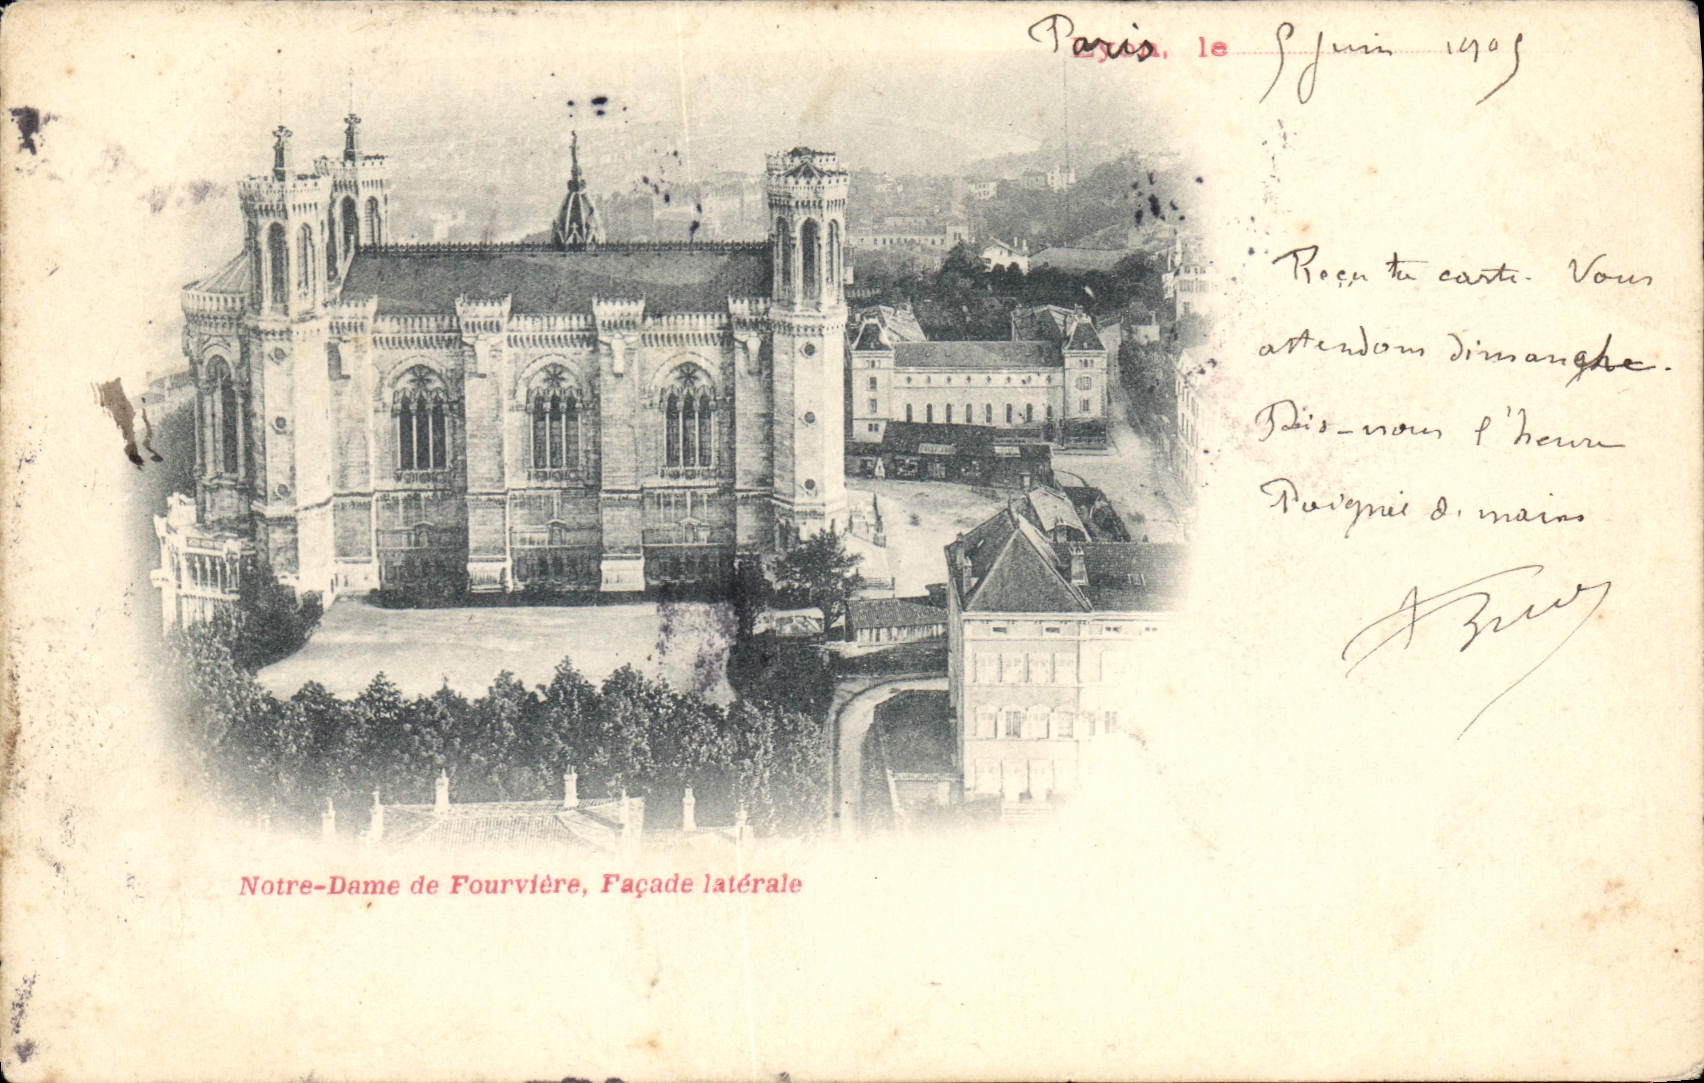 Paris, le 5 Juin 1905
Reçu ta carte. Vous
attendons dimanche.
Dis-nous l'heure
Poignée de mains
Notre-Dame de Fourvière, Façade latérale